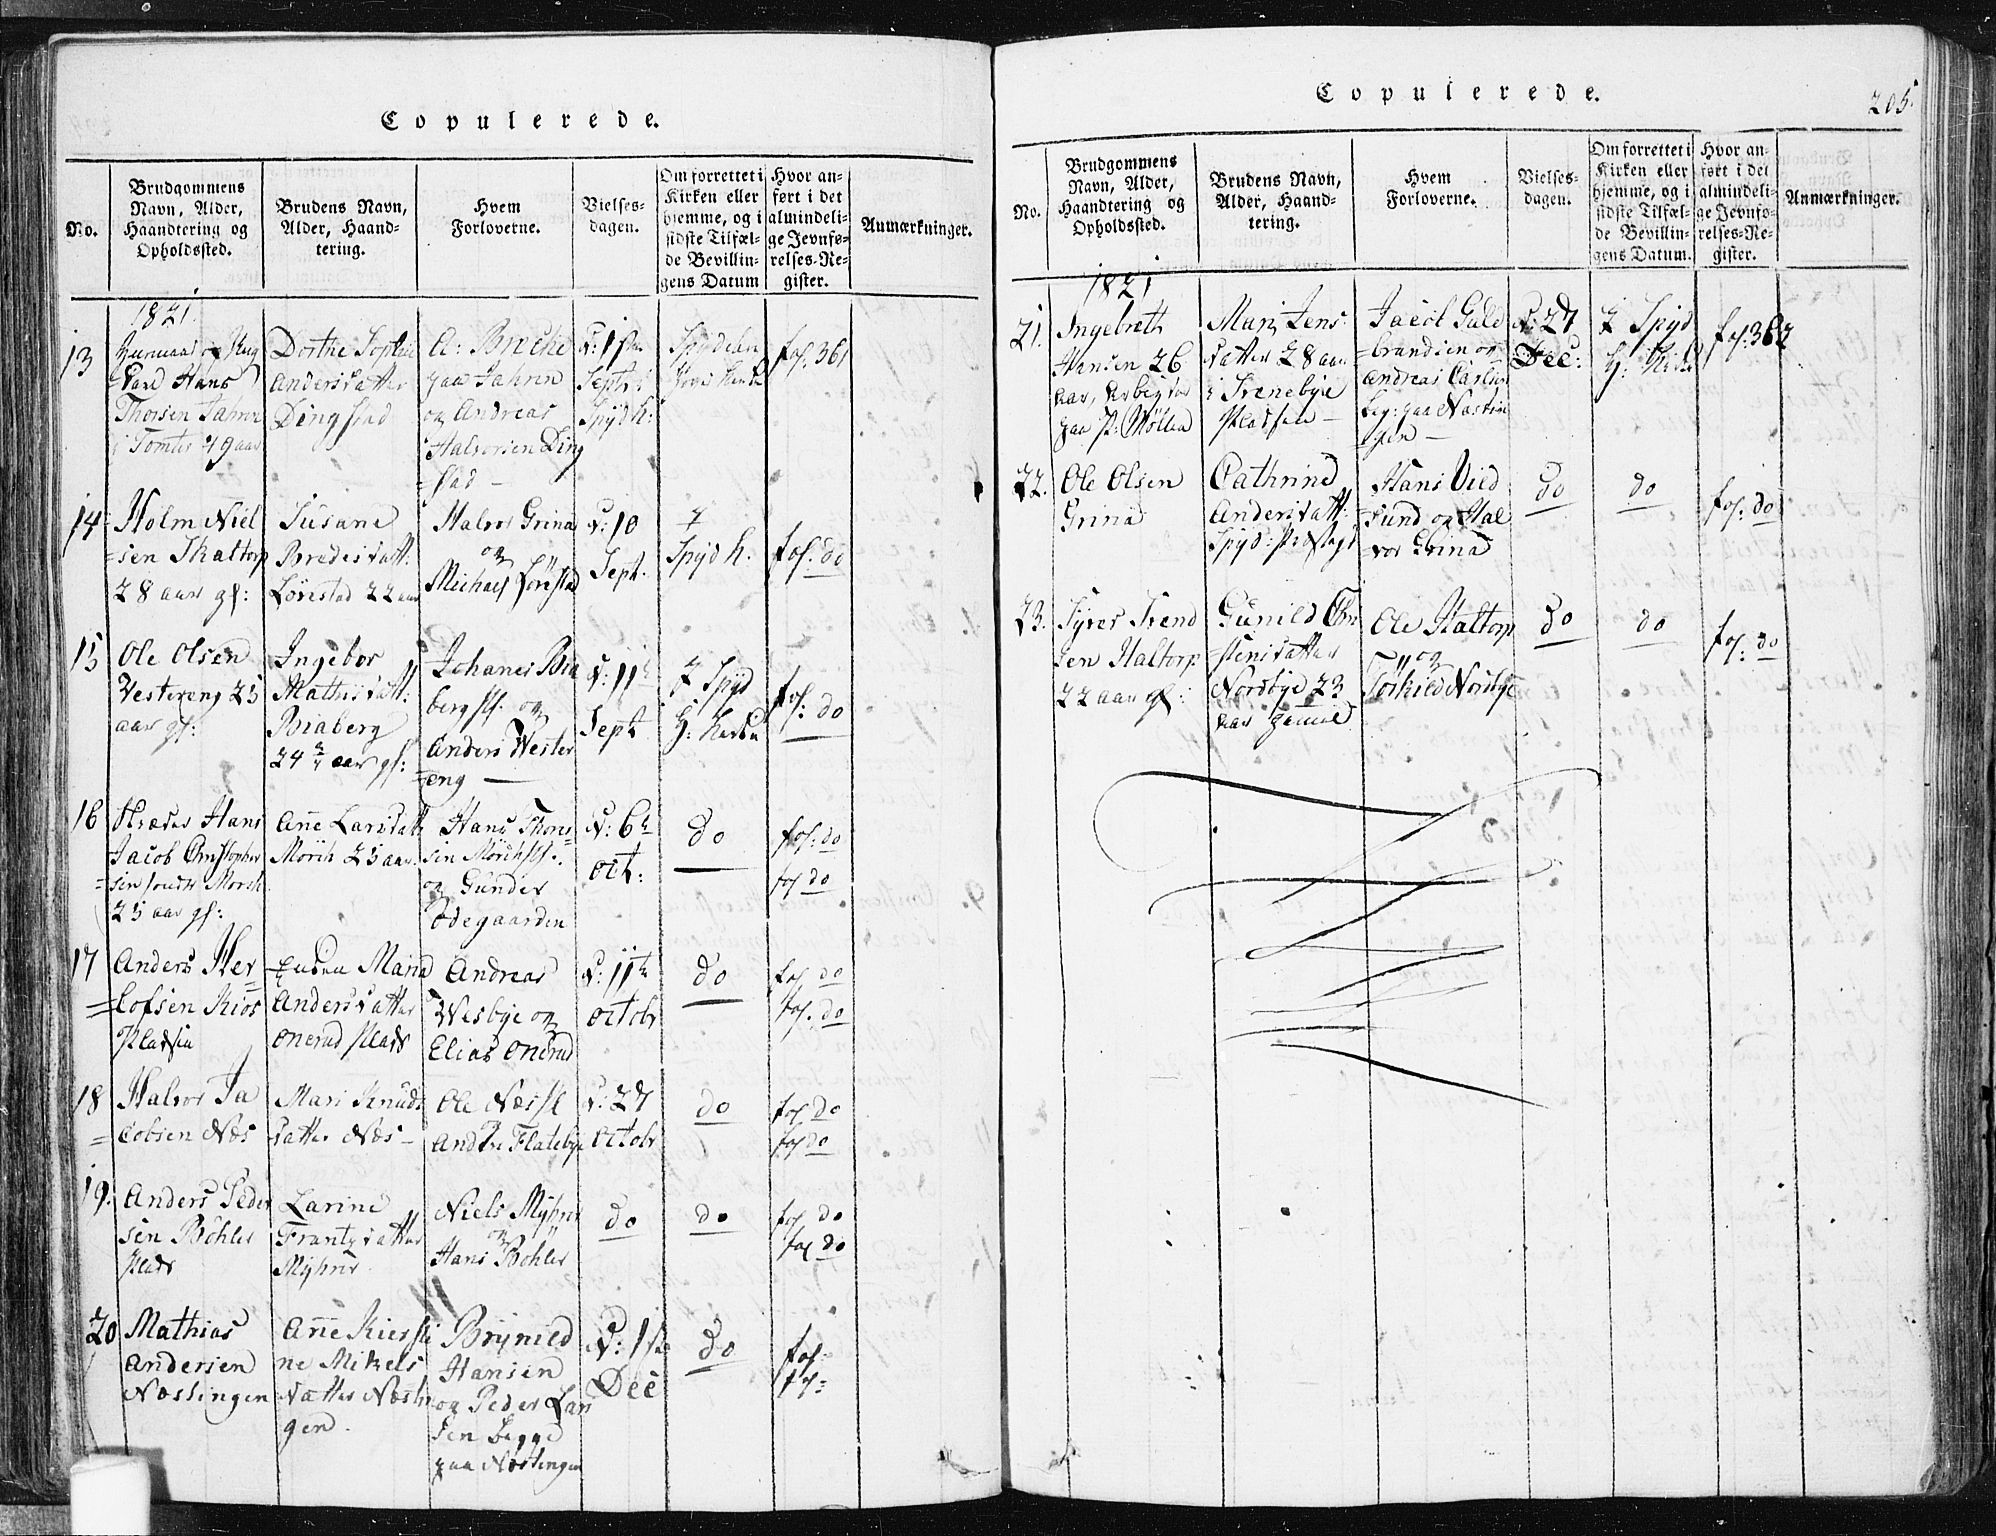 Copulerede.
No.
Brudgommens
Navn, Alder,
Haandtering og
Opholdssted.
Brudens Navn,
Alder, Haand-
tering.
Hvem
Forloverne.
Vielses-
dagen.
Om forrettet i
Kirken eller
hjemme, og i
sidste Tilfæl-
de Bevillin-
gens Datum
Hvor an-
ført i det
almindeli-
ge Jevnfø-
relses-Re-
gister.
Anmærkninger.
1821.
13
Hans
Thorsen
i Tomter 49 aar
Dorthe Sophie
Andersdatter
Dingstad
og Andreas
Halvorsen Ding
=stad
Sept:
Spyd k:
fol: 361
14
Holm Niel
=sen Skaltorp
28 aar gl:
Susane
Bredesdatt:
Lörestad 22 aar
Halvor Grina
og
Michael Lörestad
d: 10
Sept.
Spyd k.
fol: do
15
Ole Olsen
Vestereng 25
aar gl:
Ingebor
Mathisdatt:
Braberg
24 aar gl:
Johanes Bra
berg og
Anders Wester
=eng
d: 11
Sept
Spyd
fol: do
16
Hans
Jacob Christopher
=sen
25 aar gl:
Ane Larsdatt
Mörch 25 aar
Hans Thore
sen
og Gunder
Ödegaarden
d: 6
Oct:
do
fol: do
fol do
17
Anders Her
=lofsen Kios
Pladsen
Maria
Andersdatter
Onerud Plads
Andreas
Wesbye og
Elias Onerud
d: 11te
Octobr
do
fol do
fol. do
18
Halvor Ja
=cobsen Næs
Mari Knuds
datter Næs
Ole Næs
Andre Flatebye
d: 27
Octobr
do
fol do
fol do
19.
Anders Peder
sen Böhler
Plads
Larine
Frantzdatter
Myhrer
Niels Myhrer
og
Hans Böhler
do
do
fol do
fol do
20
Mathias
Andersen
Næstingen
Ane Kiersti
ne Mikels
datter Næstin
gen.
Brynild
Hansen
og Peder Lar
sen begge
paa Næstingen
Dec
do
fol:
fol:
Copulerede.
205.
No.
Brudgommens
Navn, Alder,
Haandtering og
Opholdssted.
Brudens Navn,
Alder, Haand-
tering.
Hvem
Forloverne.
Vielses-
dagen.
Om forrettet i
Kirken eller
hjemme, og i
sidste Tilfæl-
de Bevillin-
gens Datum.
Hvor an-
ført i det
almindeli-
ge Jevnfø-
relses-Re-
gister.
Anmærkninger.
1821
21.
Ingebreth
Hansen 26
aar,
paa
Mari Jens
datter 28 aar
i Trenebye
Pladsen
Jacob Guld
=brandsen og
Andreas Carlsen
beg: paa Næstin
gen
d: 27
Dec:
Spyd
fol: 362
22.
Ole Olsen
Grina
Cathrine
Andersdatt:
Hans Vild
=sund og Hal
=vor Grina
do
do
fol: do
23.
Syver Svend
sen Haltorp
22 aar gl:
Gunild Chri
=stensdatter
Nordbye 23
aar gamel
Ole Haltorp
og
Torkild Nordbye
do
do
fol: do